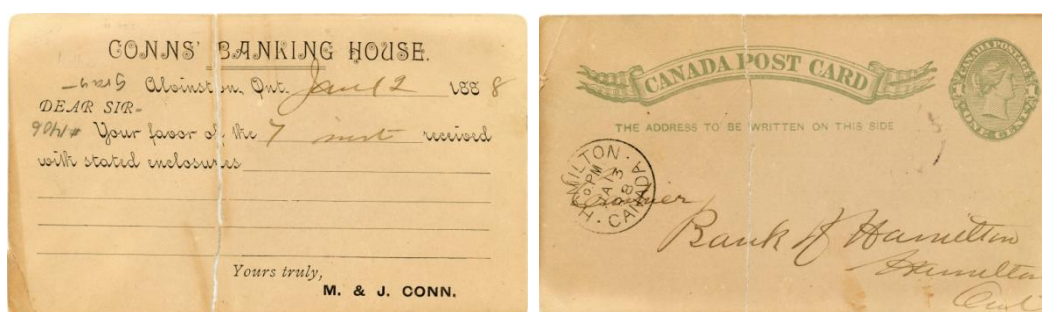 CONNS' BANKING HOUSE.
Alvinston, Ont. Jan 12 1888
DEAR SIR-
Your favor of the 7 inst received
with stated enclosures
Yours truly,
M. & J. CONN.
CANADA POST CARD
CANADA POSTAGE
1 1
ONE CENT
THE ADDRESS TO BE WRITTEN ON THIS SIDE
HAMILTON.
PM
JA 13
8
CANADA
Bank of Hamilton
Hamilton
Ont